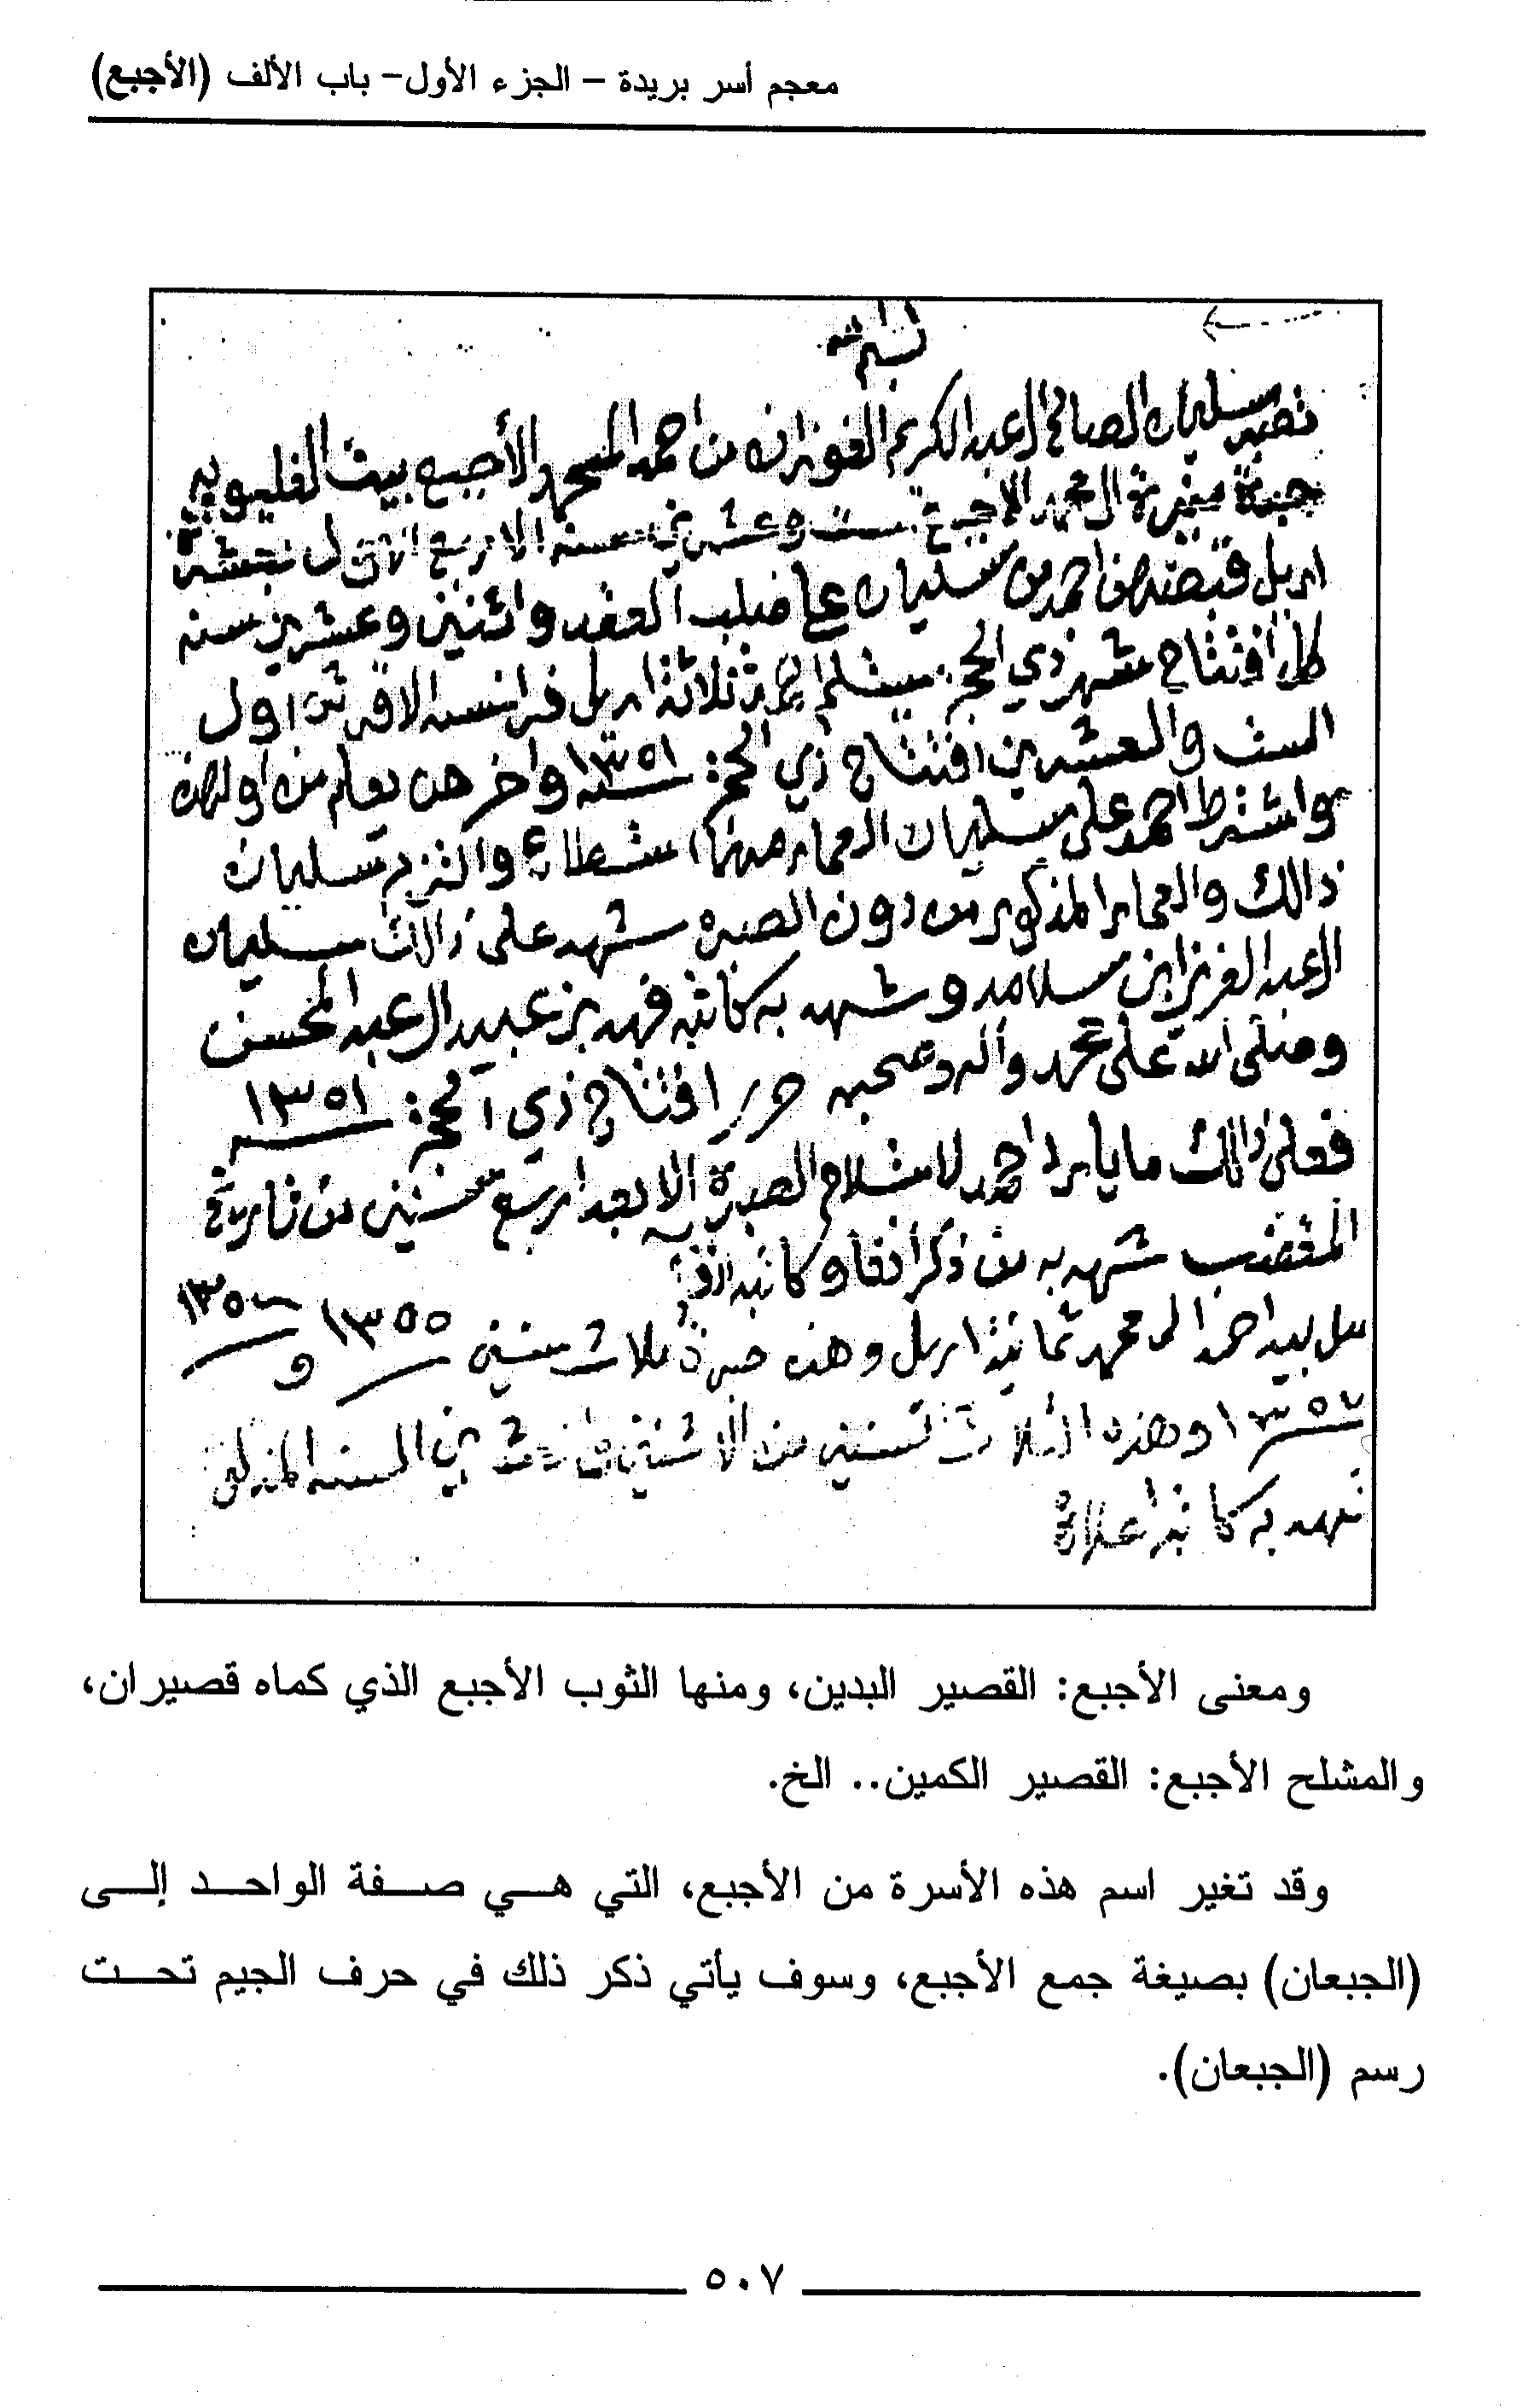 معجم أسر بريدة – الجزء الأول– باب الألف (الأجبع)
بسم الله
تصبر سليمان الصالح العبد الكريم الفوزان من احمد المحمد الأجبع بيت
صبرة منيرة المحمد الاجبع ست وعشرين سنة الاربع الاول
اربل قبضتهن احمد من سليمان على صلب العقد واثنين وعشرين سنه
كل افتتاح شهر ذي الحجة يستلم احمد ثلاثة اربل فرانسه اول
الست والعشرين افتتاح ذي الحجة سنة ١٣٥١ واخرهن يعلم من اولهن
واشترط احمد على سليمان العماره والتزم سليمان
ذالك والعمار المذكور من دون الصبره شهد على ذالك سليمان
العبد العزيز ابن سلامه وشهد به كاتبه فهد بن عبيد ال عبد المحسن
وصلى الله على محمد وآله وصحبه حرر افتتاح ذي الحجة ١٣٥١
فعلى ذالك احمد الصبرة الا بعد اربع سنين من تاريخ
شهد به من ذكر أنفا وكاتبه
احمد المحمد ثمانية اربل وهن صبرة ثلاث سنين ١٣٥٥ و
وهذه الثلاث سنين من الاثنين
شهد به كاتبه أعلاه
ومعنى الأجبع: القصير البدين، ومنها الثوب الأجبع الذي كماه قصيران،
والمشلح الأجبع: القصير الكمين.. الخ.
وقد تغير اسم هذه الأسرة من الأجبع، التي هي صفة الواحد إلى
(الجبعان) بصيغة جمع الأجبع، وسوف يأتي ذكر ذلك في حرف الجيم تحت
رسم (الجبعان).
٥٠٧